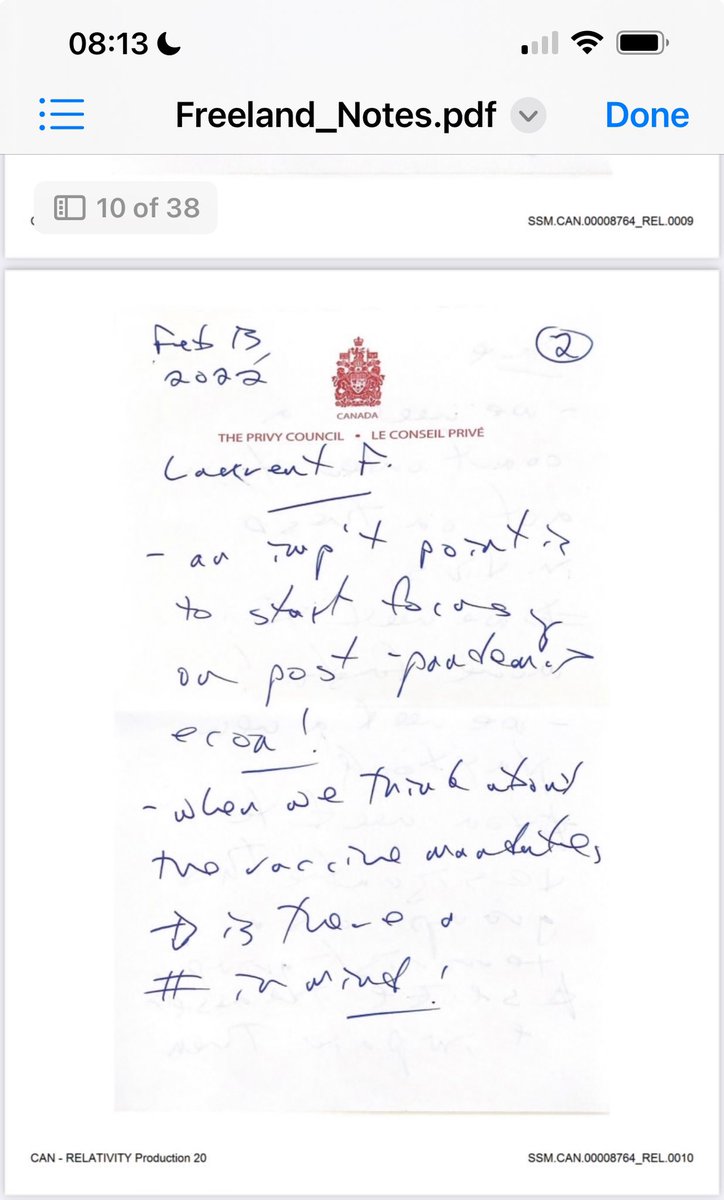 08:13
Freeland_Notes.pdf
Done
10 of 38
SSM.CAN.00008764_REL.0009
Feb 13,
2022
2
CANADA
THE PRIVY COUNCIL • LE CONSEIL PRIVÉ
Laurent F.
- an imp't point is
to start focusg
on post-pandemic
econ!
- when we think about
the vaccine mandates,
→ is there a
# in mind!
CAN - RELATIVITY Production 20
SSM.CAN.00008764_REL.0010